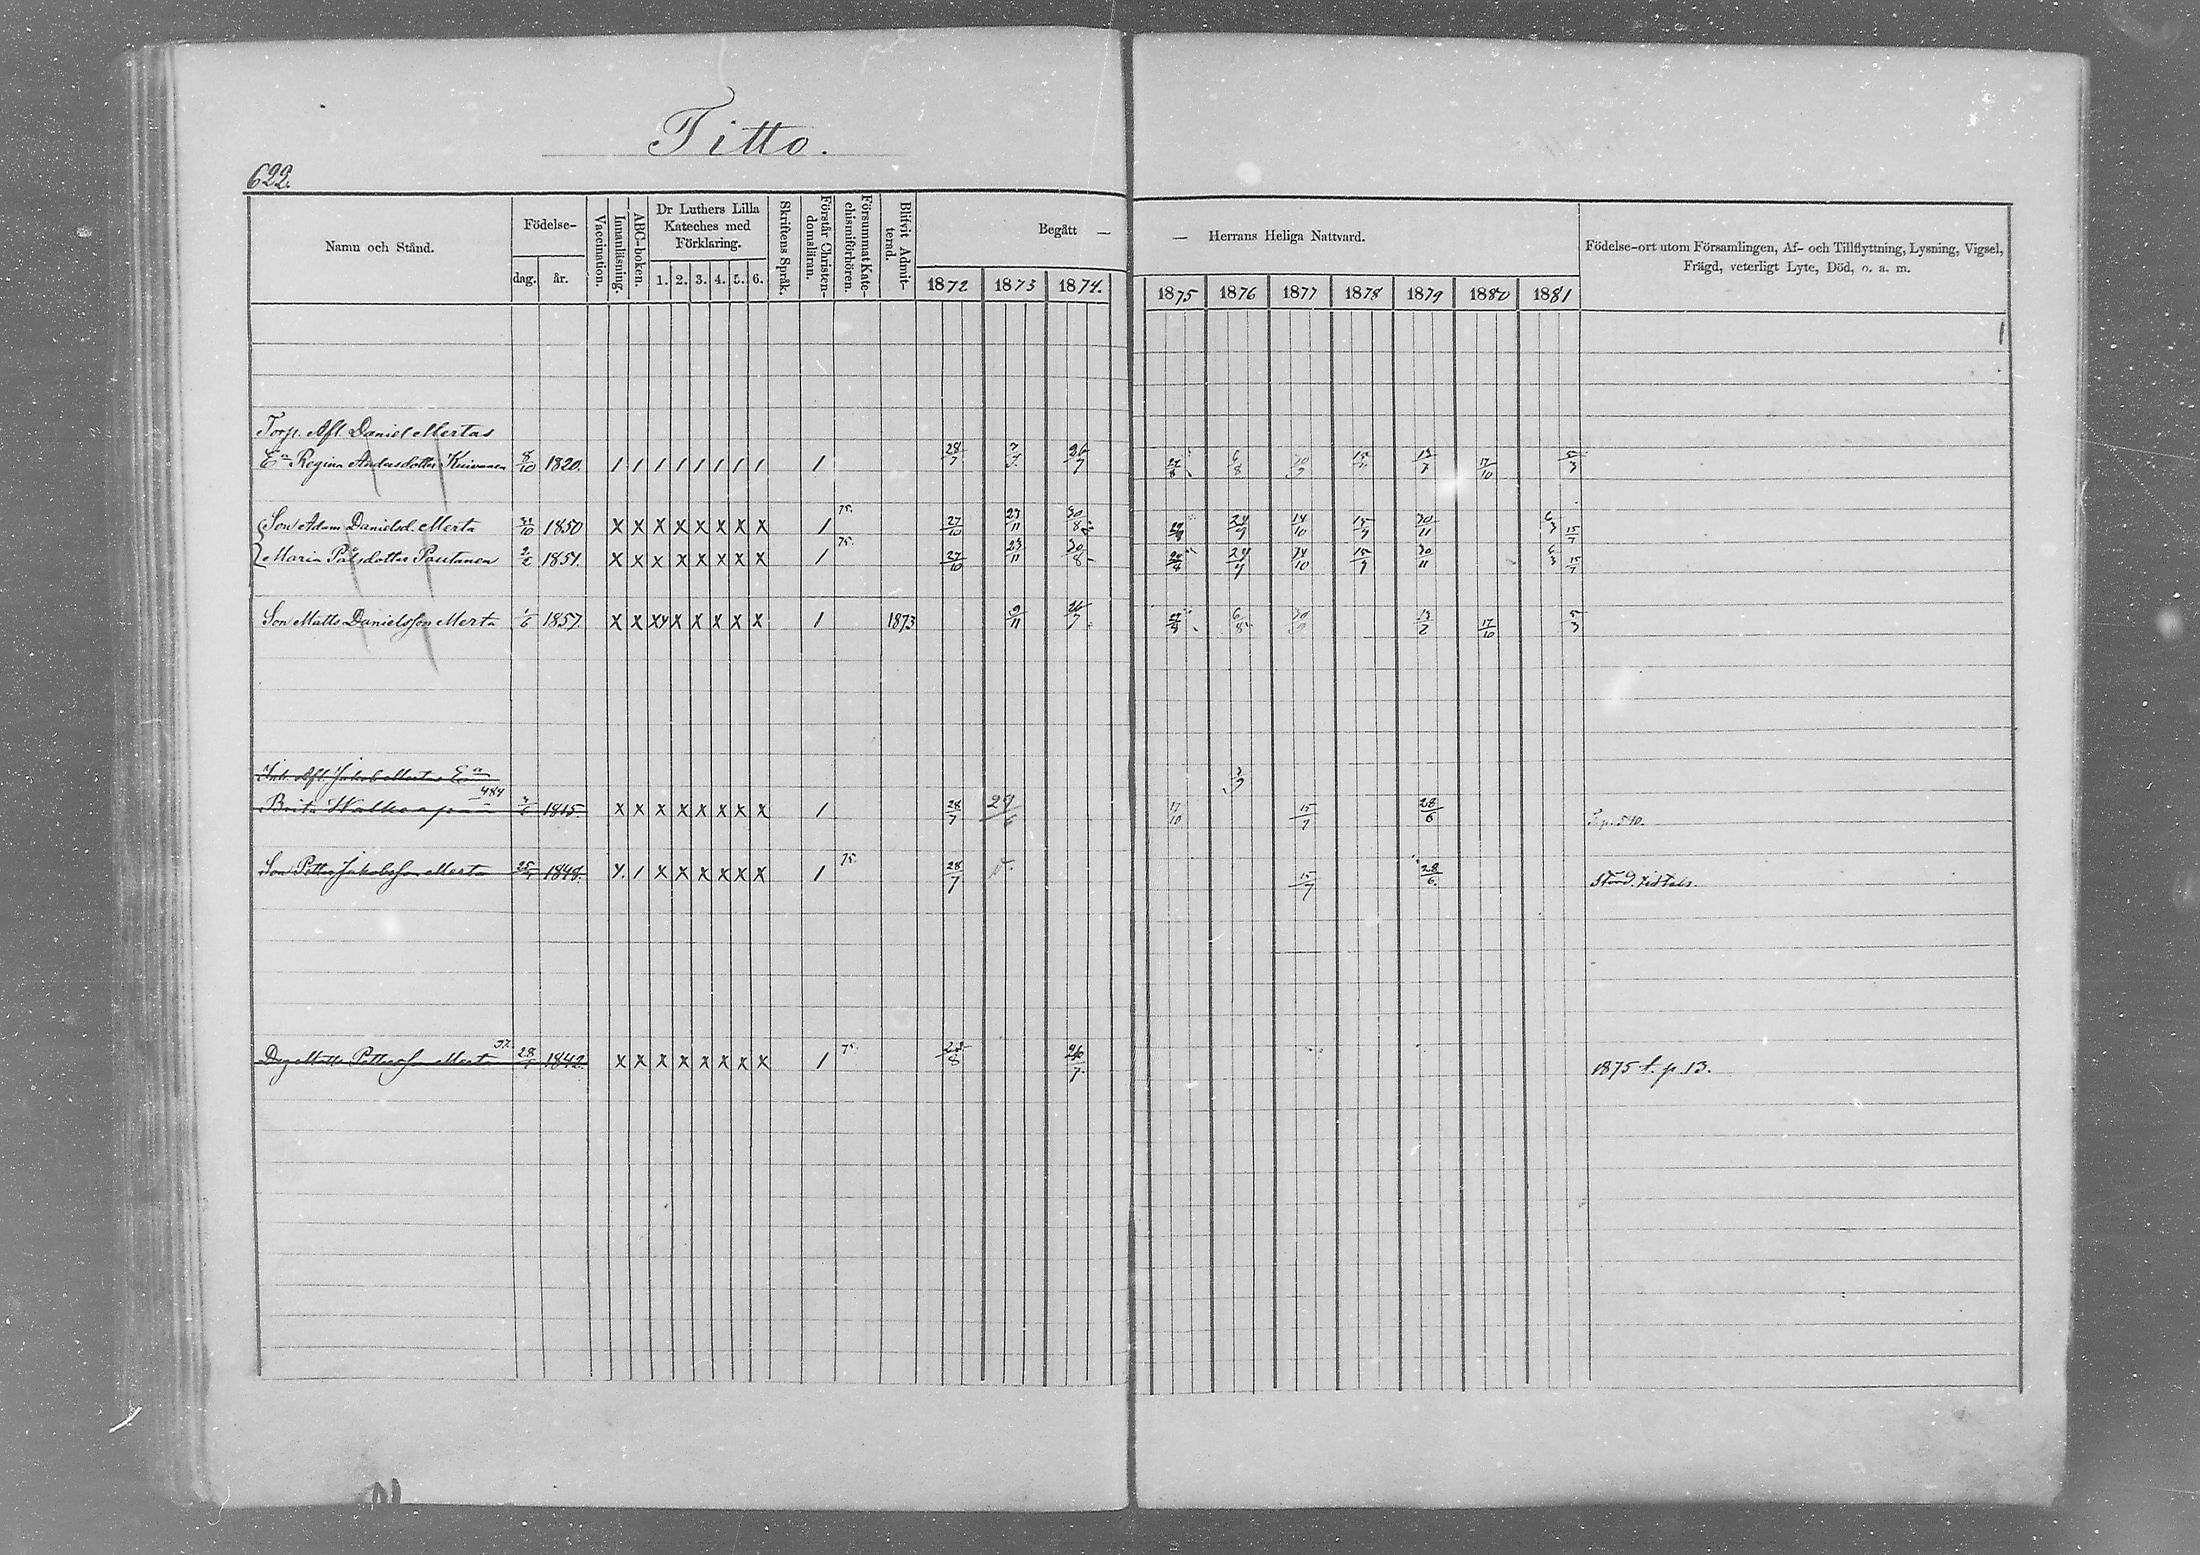 Titto.
622.
Namn och Stånd.
Födelse-
dag.
år.
Vaccination.
Innanläsning.
ABC-boken.
Dr Luthers Lilla
Kateches med
Förklaring.
1. 2. 3. 4. 5. 6.
Skriftens Språk.
Förstår Christen-
domsläran.
Försummat Kate-
chismiförhören.
Blifvit Admit-
terad.
Begått —
— Herrans Heliga Nattvard.
1872 1873 1874.
1875 1876 1877 1878 1879 1880 1881
Födelse-ort utom Församlingen, Af- och Tillflyttning, Lysning, Vigsel,
Frägd, veterligt Lyte, Död, o. a. m.
Torp. Afl. Daniel Mertas
Ea Regina Andersdotter Kuivanen 8/10 1820. / / / / / / / / / 28/7 26/7 6/8 17/10 5/3
Son Adam Danielsd. Merta 1850 X X X X X X X X / 75. 27/10 23/11 30/8 24/9 14/10 15/9 30/11 6/3 15/7
Maria Pålsdotter Pautanen 2/2 1851. X X X X X X X X / 75. 27/10 23/11 30/8 24/9 14/10 15/9 30/11 6/3 15/7
Son Matts Danielsson Merta 1/6 1857. X X X X X X X X / 1873 9/11 26/7 6/8 17/10 5/3
Inh. Afl. Jakob Mertas Ea
484
Brita 1815. X X X X X X X X / 28/7 29/6 17/10 15/7 28/6
Son Petter Jakobsson Merta 25/ 1848. / X X X X X X / 75. 28/7 15/7 28/6.
Matts Pettersson Mert 28/ 1842. X X X X X X X X / 75. 26/7. 1875 t. p. 13.